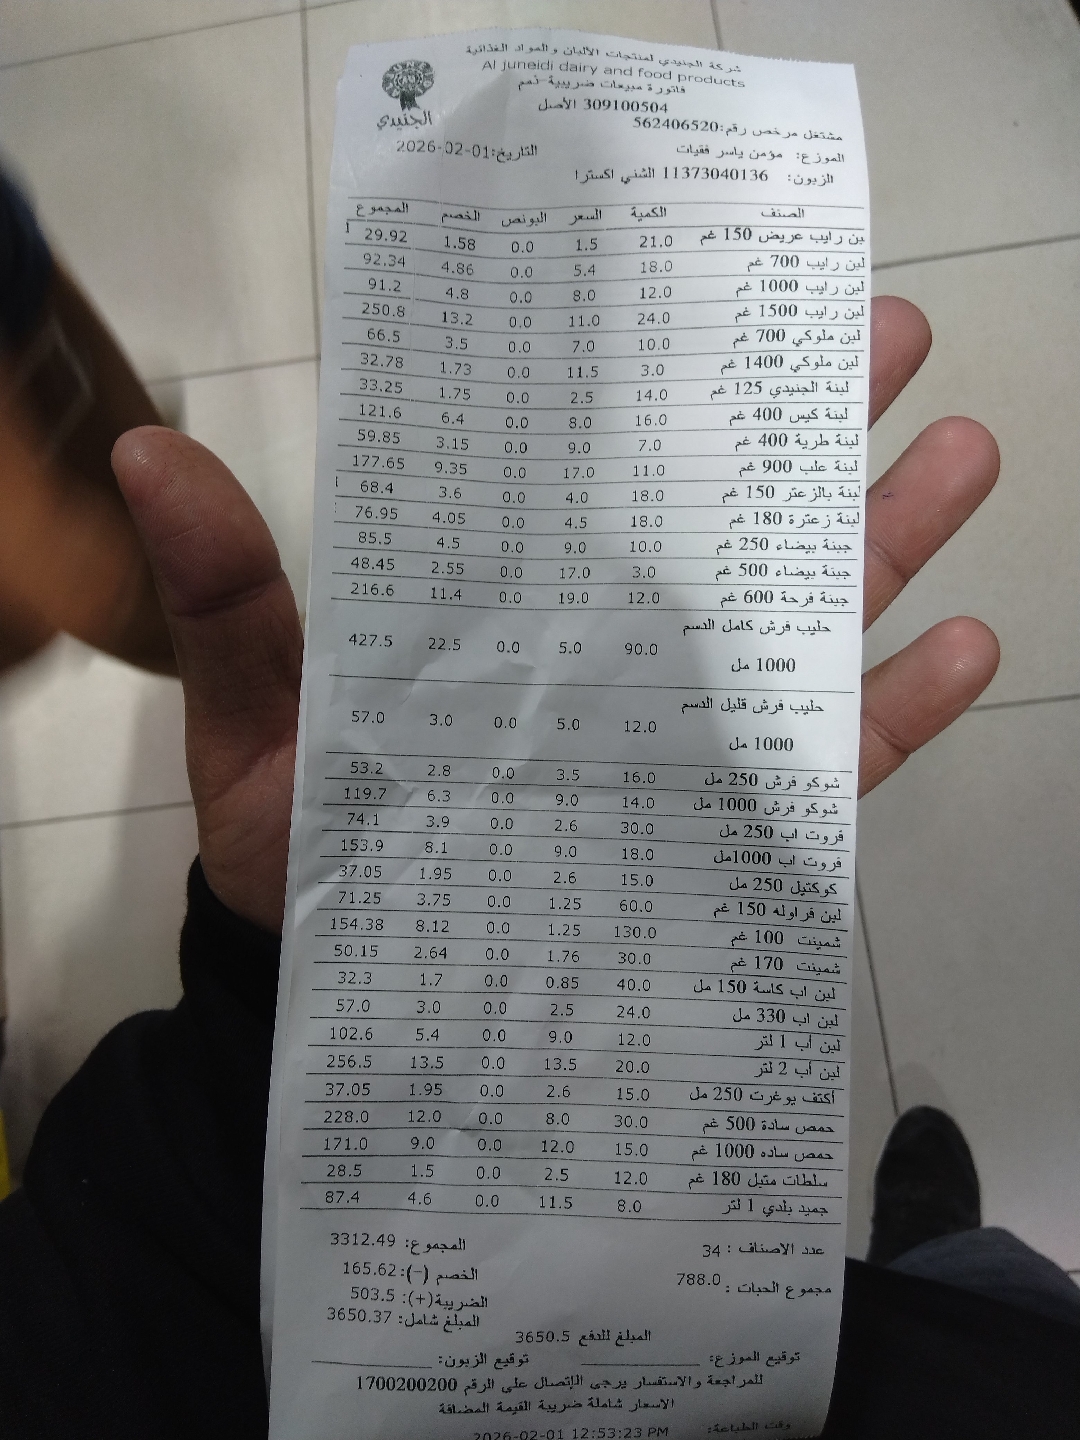 شركة الجنيدي لمنتجات الألبان والمواد الغذائية
Al juneidi dairy and food products
فاتورة مبيعات ضريبية-ذمم
309100504 الأصل
الجنيدي
مشتغل مرخص رقم:562406520
الموزع: مؤمن ياسر فقيات التاريخ:2026-02-01
الزبون: 11373040136 الشني اكسترا
الصنف الكمية السعر البونص الخصم المجموع
لبن رايب عريض 150 غم 21.0 1.5 0.0 1.58 29.92
لبن رايب 700 غم 18.0 5.4 0.0 4.86 92.34
لبن رايب 1000 غم 12.0 8.0 0.0 4.8 91.2
لبن رايب 1500 غم 24.0 11.0 0.0 13.2 250.8
لبن ملوكي 700 غم 10.0 7.0 0.0 3.5 66.5
لبن ملوكي 1400 غم 3.0 11.5 0.0 1.73 32.78
لبنة الجنيدي 125 غم 14.0 2.5 0.0 1.75 33.25
لبنة كيس 400 غم 16.0 8.0 0.0 6.4 121.6
لبنة طرية 400 غم 7.0 9.0 0.0 3.15 59.85
لبنة علب 900 غم 11.0 17.0 0.0 9.35 177.65
لبنة بالزعتر 150 غم 18.0 4.0 0.0 3.6 68.4
لبنة زعترة 180 غم 18.0 4.5 0.0 4.05 76.95
جبنة بيضاء 250 غم 10.0 9.0 0.0 4.5 85.5
جبنة بيضاء 500 غم 3.0 17.0 0.0 2.55 48.45
جبنة فرحة 600 غم 12.0 19.0 0.0 11.4 216.6
حليب فرش كامل الدسم
1000 مل 90.0 5.0 0.0 22.5 427.5
حليب فرش قليل الدسم
1000 مل 12.0 5.0 0.0 3.0 57.0
شوكو فرش 250 مل 16.0 3.5 0.0 2.8 53.2
شوكو فرش 1000 مل 14.0 9.0 0.0 6.3 119.7
فروت اب 250 مل 30.0 2.6 0.0 3.9 74.1
فروت اب 1000مل 18.0 9.0 0.0 8.1 153.9
كوكتيل 250 مل 15.0 2.6 0.0 1.95 37.05
لبن فراوله 150 غم 60.0 1.25 0.0 3.75 71.25
شمينت 100 غم 130.0 1.25 0.0 8.12 154.38
شمينت 170 غم 30.0 1.76 0.0 2.64 50.15
لبن اب كاسة 150 مل 40.0 0.85 0.0 1.7 32.3
لبن اب 330 مل 24.0 2.5 0.0 3.0 57.0
لبن أب 1 لتر 12.0 9.0 0.0 5.4 102.6
لبن أب 2 لتر 20.0 13.5 0.0 13.5 256.5
أكتف يوغرت 250 مل 15.0 2.6 0.0 1.95 37.05
حمص سادة 500 غم 30.0 8.0 0.0 12.0 228.0
حمص ساده 1000 غم 15.0 12.0 0.0 9.0 171.0
سلطات متبل 180 غم 12.0 2.5 0.0 1.5 28.5
جميد بلدي 1 لتر 8.0 11.5 0.0 4.6 87.4
عدد الاصناف : 34 المجموع: 3312.49
مجموع الحبات : 788.0 الخصم (-): 165.62
الضريبة(+): 503.5
المبلغ شامل: 3650.37
المبلغ للدفع 3650.5
توقيع الموزع: توقيع الزبون:
للمراجعة والاستفسار يرجى الإتصال على الرقم 1700200200
الاسعار شاملة ضريبة القيمة المضافة
وقت الطباعة: 2026-02-01 12:53:23 PM